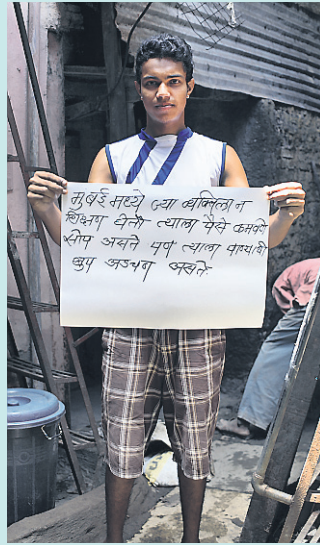 मुंबई मध्ये ज्या व्यक्तिला न
शिक्षण घेता त्याला पैसे कमवणे
सोप असते पण त्याला पाण्याची
खुप अडचण असते